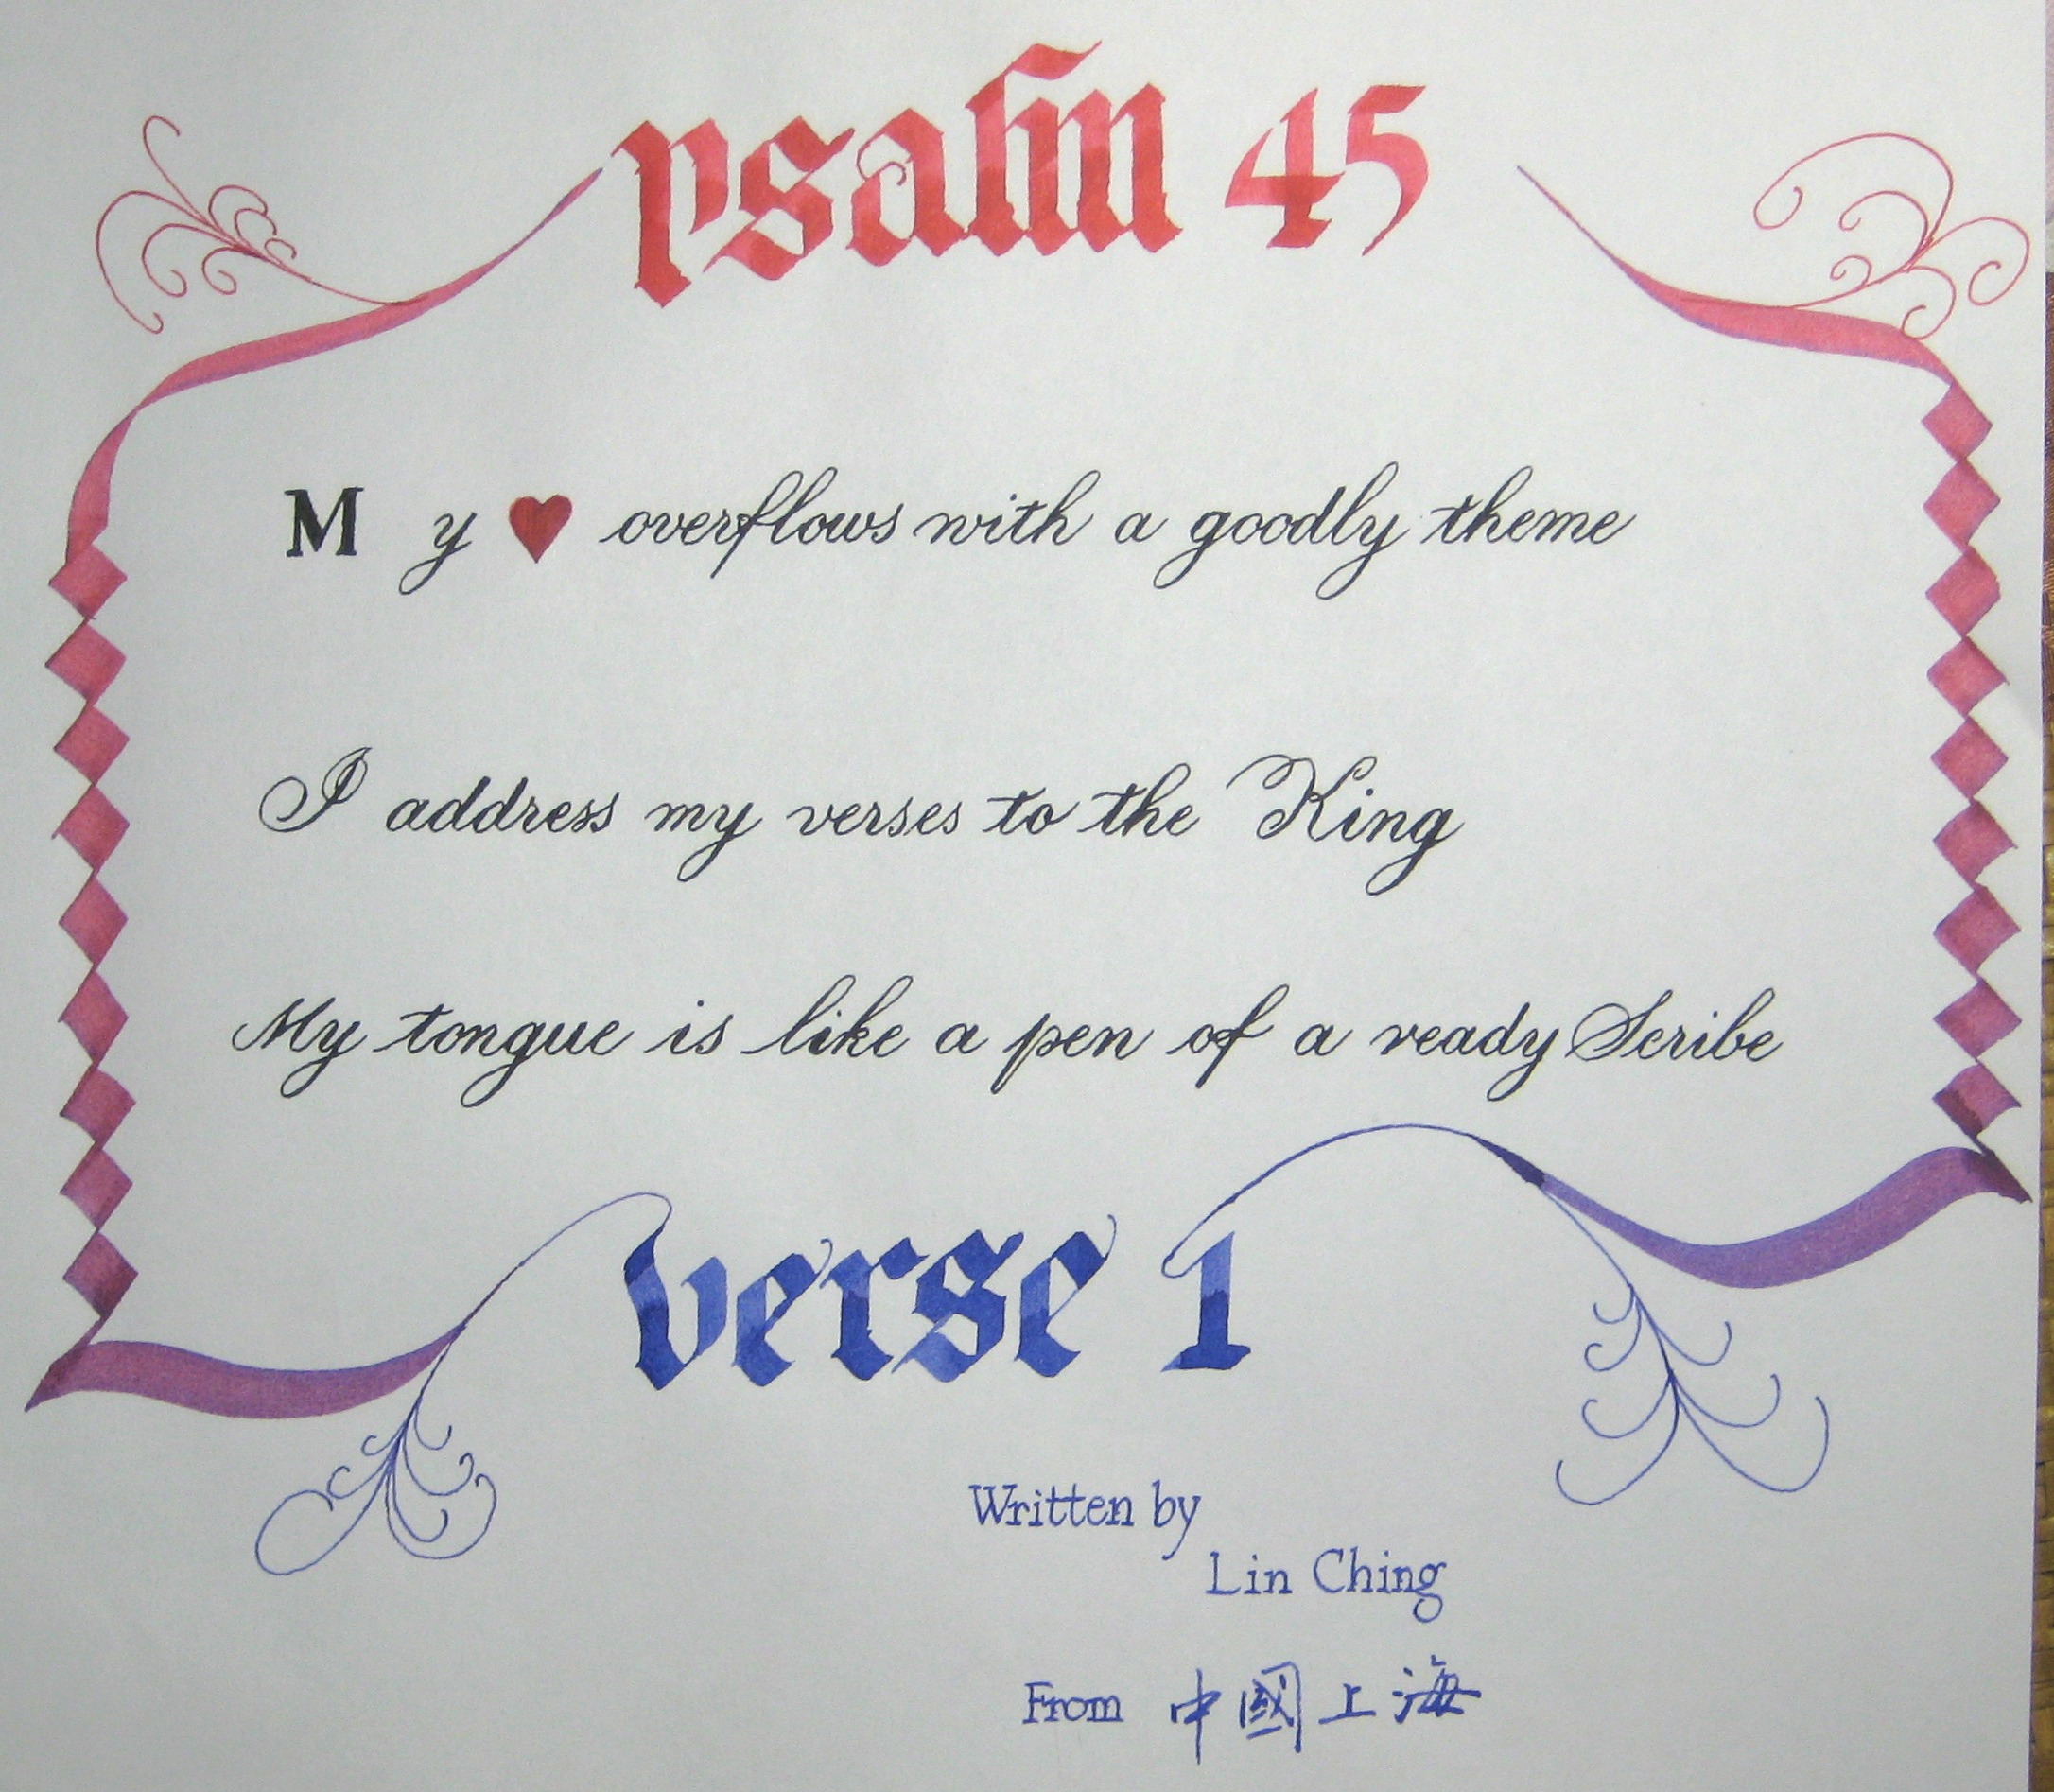 psalm 45
My ♥ overflows with a goodly theme
I address my verses to the King
My tongue is like a pen of a ready Scribe
verse 1
Written by
Lin Ching
From 中國上海